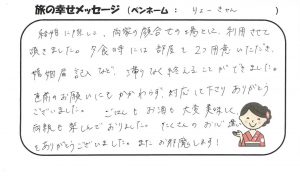 旅の幸せメッセージ（ペンネーム： りょーさん ）
結婚に際し、両家の顔合せの場として、利用させて
頂きました。夕食時には部屋を2つ用意いただき、
婚姻届記入など、滞りなく終えることができました。
直前のお願いにもかかわらず、対応して下さりありがとう
ございました。ごはんもお酒も大変美味しく、
両親も楽しんでおりました。たくさんのお心遣い
をありがとうございました。またお邪魔します！